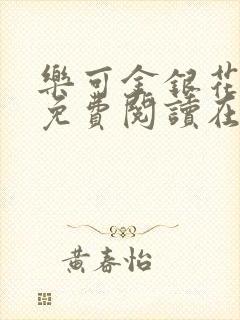 樂可金銀花
免費閱讀在
黃春怡